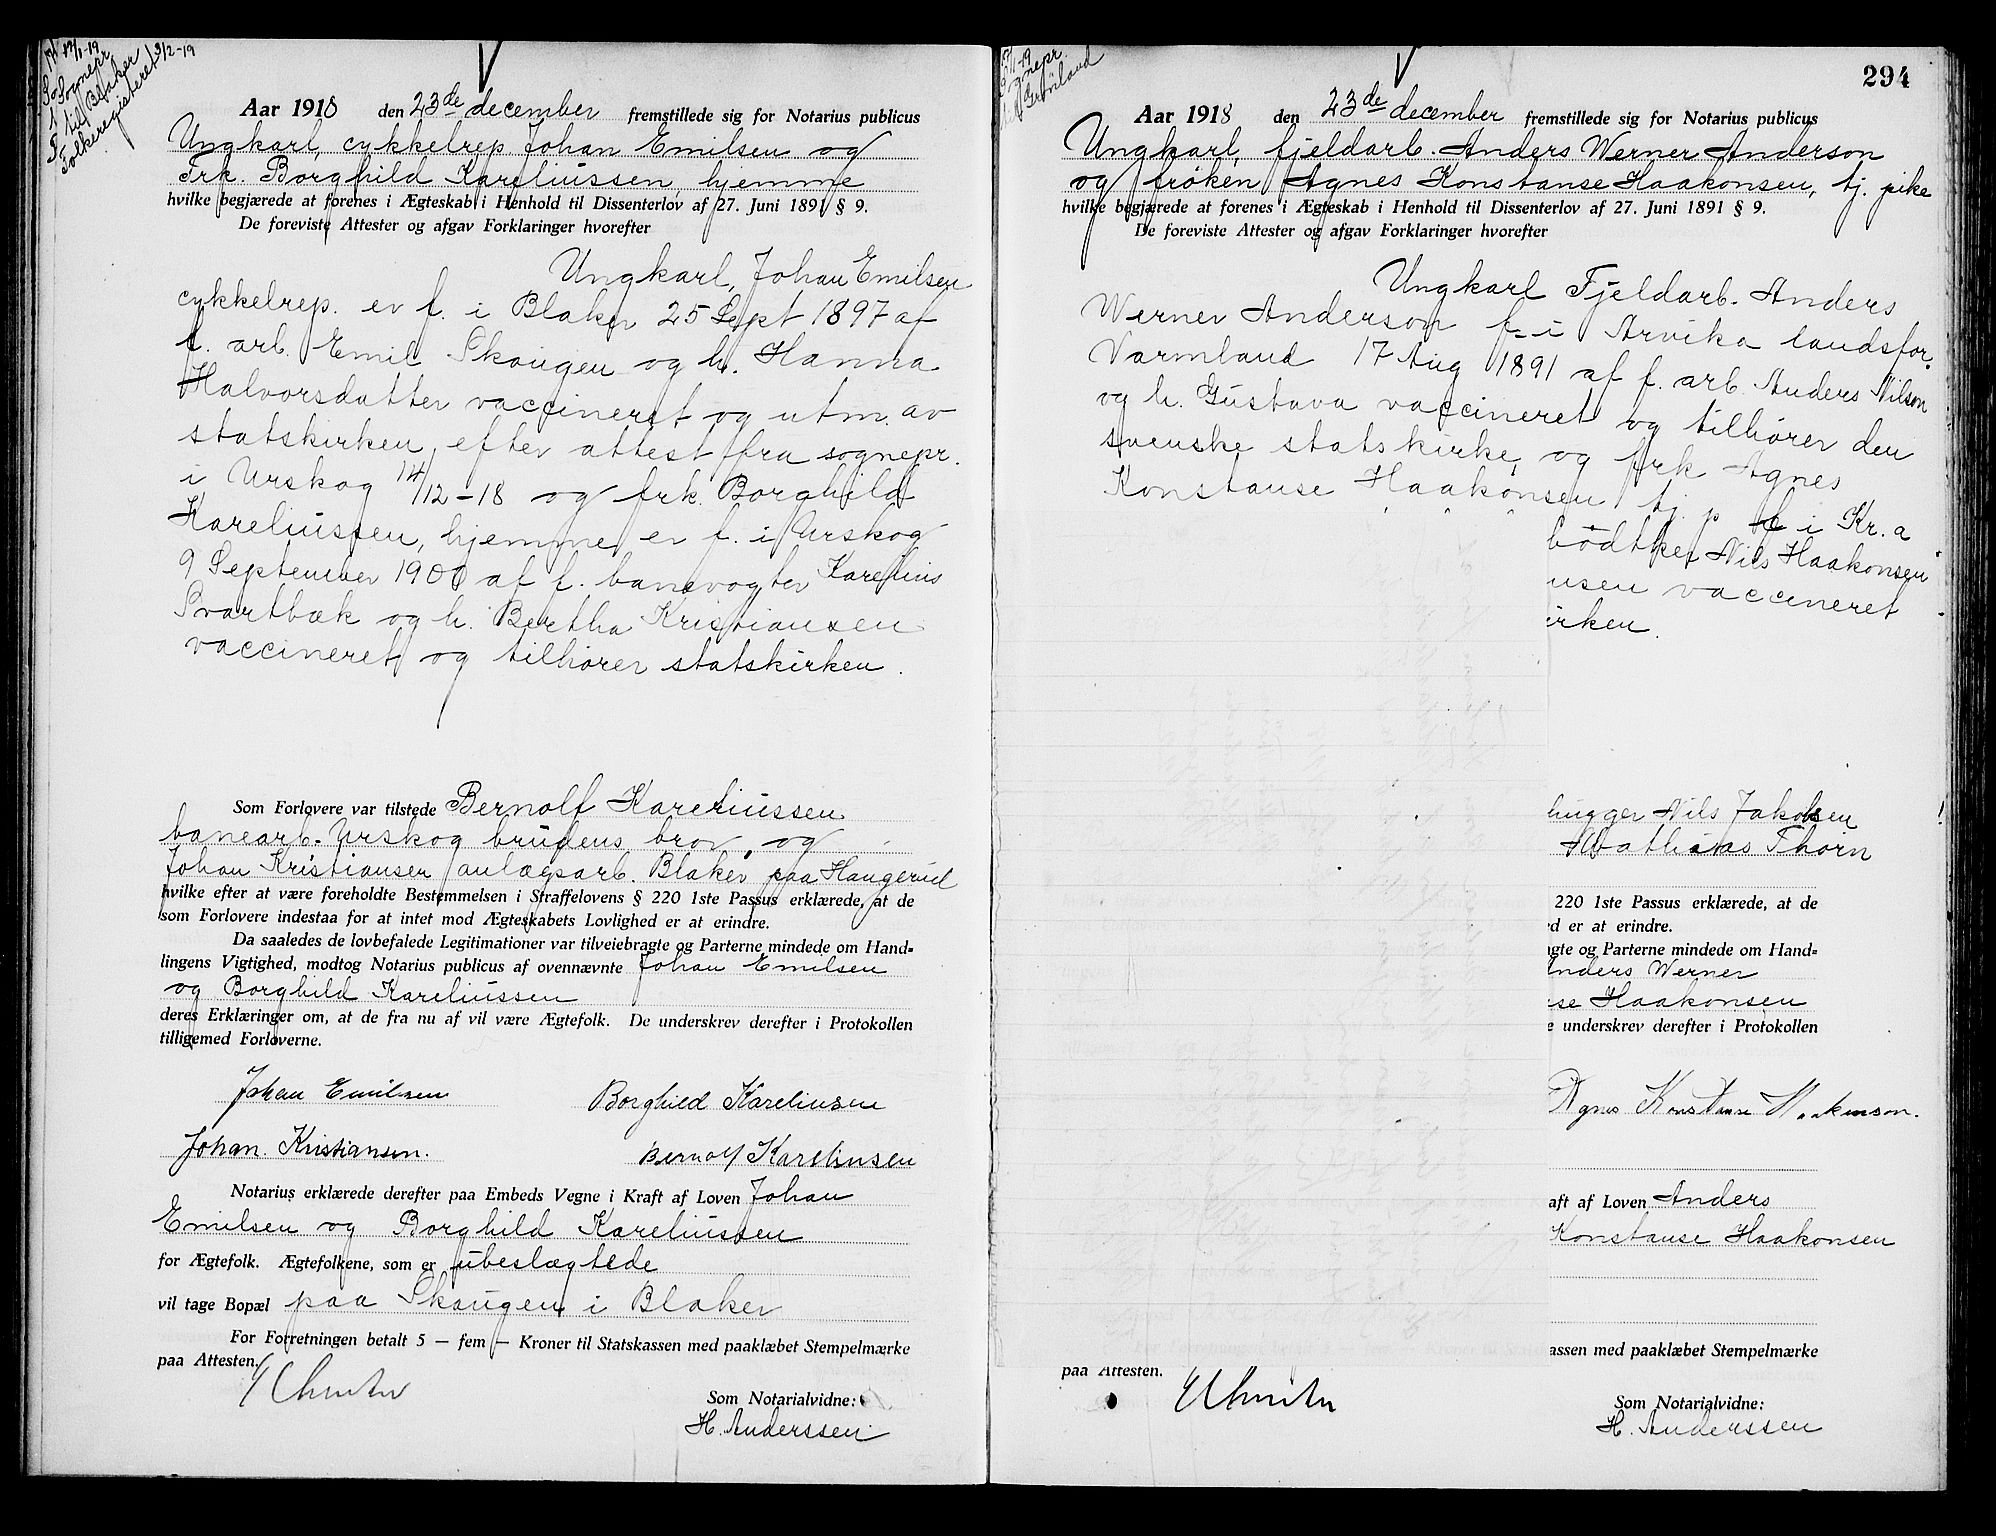 17/1-19
Sognepr.
til Blaker
Folkeregisteret 3/2-19
Aar 1918 den 23de december fremstillede sig for Notarius publicus
Ungkarl, cykkelrep. Johan Emilsen og
Frk. Borghild Kareliussen, hjemme
hvilke begjærede at forenes i Ægteskab i Henhold til Dissenterlov af 27. Juni 1891 § 9.
De foreviste Attester og afgav Forklaringer hvorefter
Ungkarl, Johan Emilsen
cykkelrep. er f. i Blaker 25 Sept 1897 af
f. arb. Emil Skaugen og h. Hanna
Halvorsdatter vaccineret og utm. av
statskirken efter attest fra sognepr.
i Urskog 14/12-18 og frk. Borghild
Kareliussen, hjemme er f. i Urskog
9 September 1900 af f. banevogter Karelius
Svartbæk og h. Bertha Kristiansen
vaccineret og tilhører statskirken.
Som Forlovere var tilstede Bernolf Kareliussen
banearb. Urskog brudens bror, og
Johan Kristiansen anlægsarb. Blaker paa Haugerud
hvilke efter at være foreholdte Bestemmelsen i Straffelovens § 220 1ste Passus erklærede, at de
som Forlovere indestaa for at intet mod Ægteskabets Lovlighed er at erindre.
Da saaledes de lovbefalede Legitimationer var tilveiebragte og Parterne mindede om Hand=
lingens Vigtighed, modtog Notarius publicus af ovennævnte Johan Emilsen
og Borghild Kareliussen
deres Erklæringer om, at de fra nu af vil være Ægtefolk. De underskrev derefter i Protokollen
tilligemed Forloverne.
Johan Emilsen Borghild Kareliusen
Johan. Kristiansen. Bernolf Kareliusen
Notarius erklærede derefter paa Embeds Vegne i Kraft af Loven Johan
Emilsen og Borghild Kareliussen
for Ægtefolk. Ægtefolkene, som er ubeslægtede
vil tage Bopæl paa Skaugen i Blaker
For Forretningen betalt 5 — fem — Kroner til Statskassen med paaklæbet Stempelmærke
paa Attesten.
Som Notarialvidne:
H. Anderssen
294
Grønland
Aar 1918 den 23de december fremstillede sig for Notarius publicus
Ungkarl, fjeldarb. Anders Werner Anderson
og frøken Agnes Konstanse Haakonsen, tj. pike
hvilke begjærede at forenes i Ægteskab i Henhold til Dissenterlov af 27. Juni 1891 § 9.
De foreviste Attester og afgav Forklaringer hvorefter
Ungkarl Fjeldarb. Anders
Werner Anderson f. i Arvika landsfor.
Varmland 17 Aug 1891 af f. arb. Anders Nilson
og h. Gustava vaccineret og tilhører den
svenske statskirke, og frk Agnes
Konstanse Haakonsen tj. p f. i Kr.a
bødtker Nils Haakonsen
nsen vaccineret
irken.
hugger Nils Jakobsen
Mathias Thorn
220 1ste Passus erklærede, at de
d er at erindre.
agte og Parterne mindede om Hand=
Anders Werner
se Haakonsen
e underskrev derefter i Protokollen
Agnes Konstanse Haakonson.
aft af Loven Anders
Konstanse Haakonsen
assen med paaklæbet Stempelmærke
paa Attesten.
Som Notarialvidne:
H. Anderssen